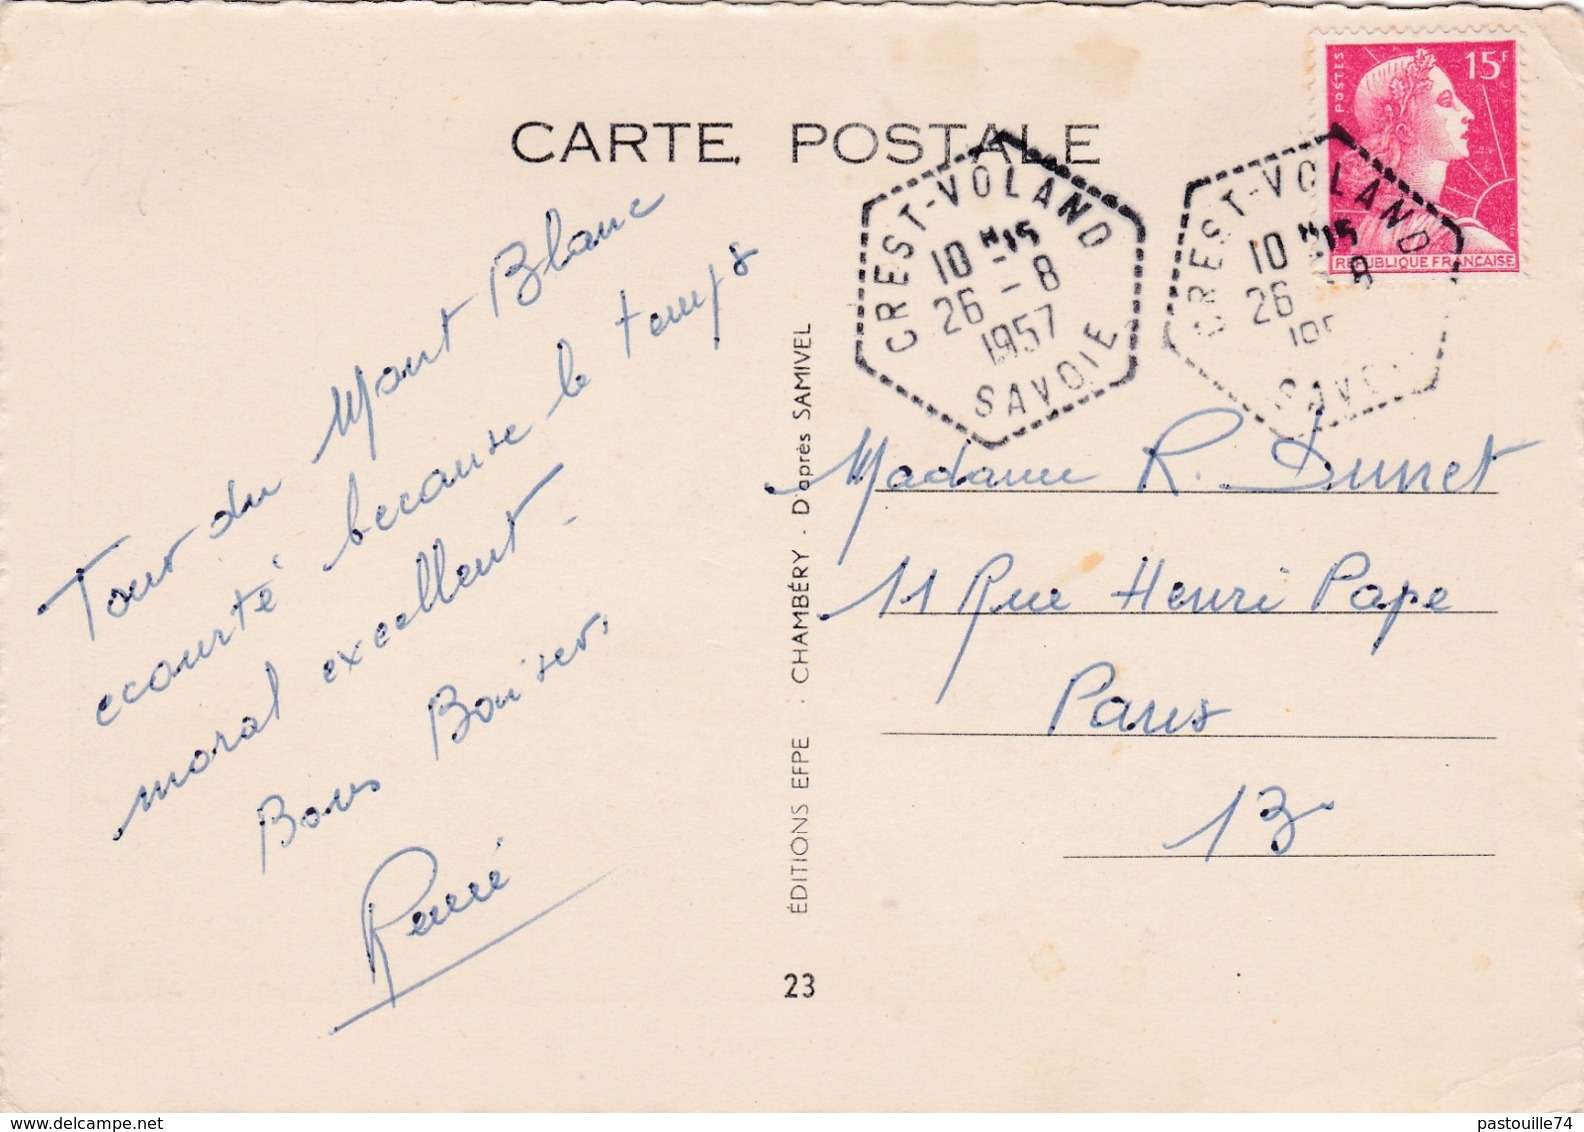 CARTE POSTALE
15F
POSTES
RÉPUBLIQUE FRANÇAISE
CREST-VOLAND
10 H 15
26 - 8
1957
SAVOIE
CREST-VOLAND
10 H 15
26 8
195
SAVO
Tour du Mont Blanc
ecourté because le temps
moral excellent -
Bons Baisers,
René
ÉDITIONS EFPE · CHAMBÉRY · D'après SAMIVEL
23
Madame R. Dunet
11 Rue Henri Pape
Paris
13
pastouille74